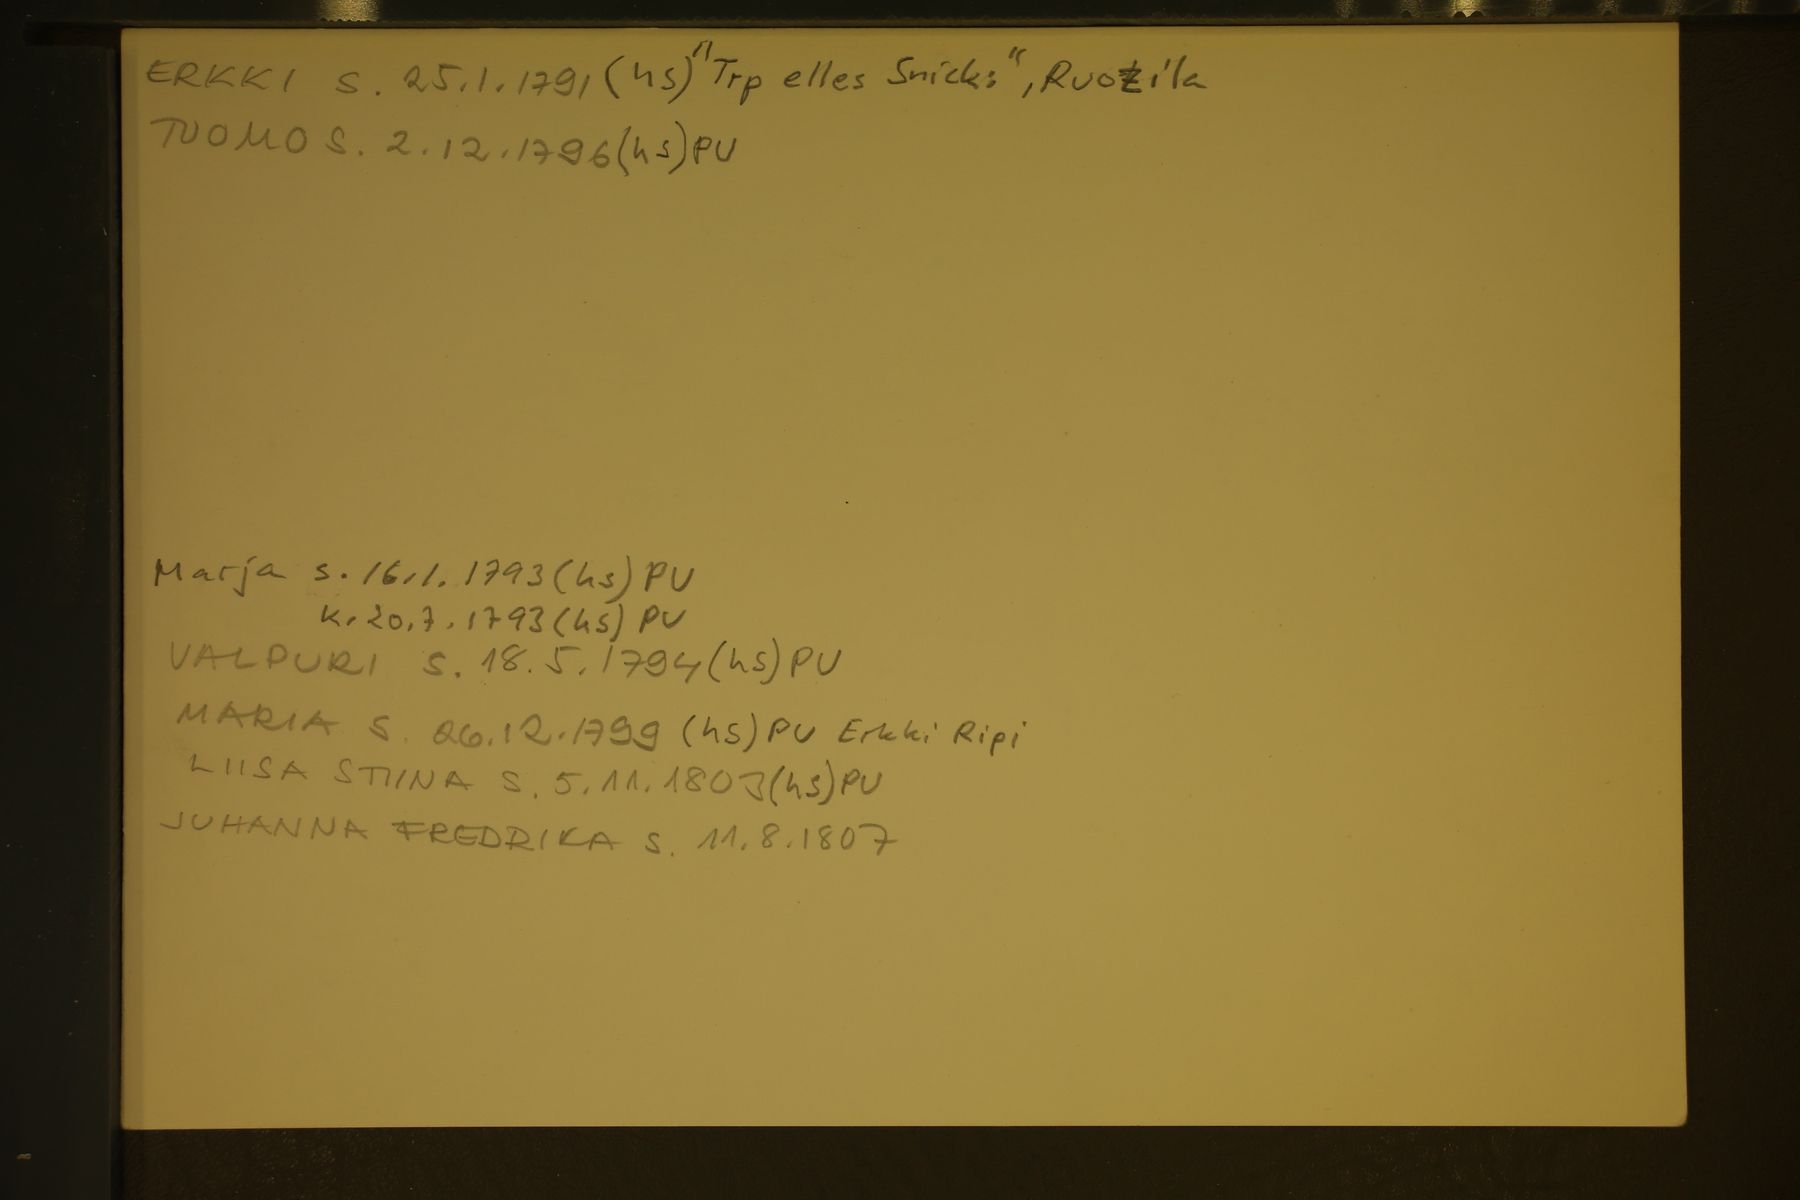 ERKKI s. 25.1.1791 (hs) "Trp elles Snicks", Ruotila
TUOMO S. 2.12.1796 (hs) PU
Marja s. 16.1.1793 (hs) PU
k. 20.7.1793 (hs) PU
VALPURI s. 18.5.1794 (hs) PU
MARIA S. 26.12.1799 (hs) PU Erkki Ripi
LIISA STIINA S. 5.11.1803 (hs) PU
JUHANNA FREDRIKA s. 11.8.1807